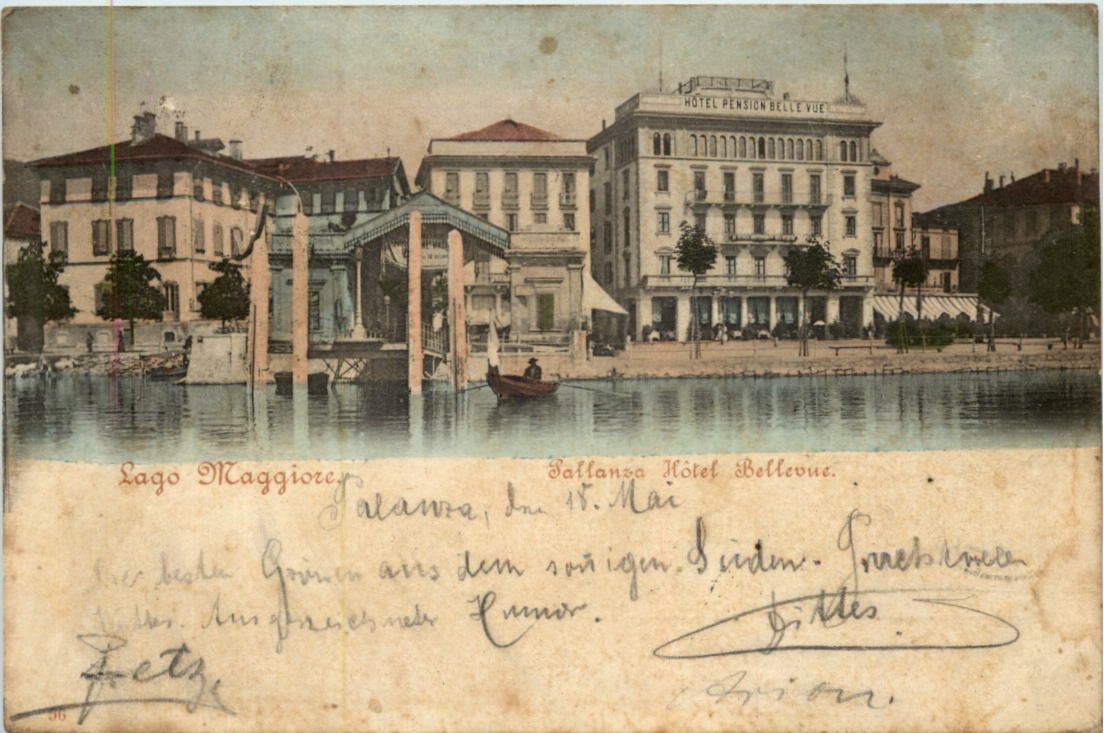 HÔTEL PENSION BELLE VUE
Lago Maggiore.
Pallanza Hôtel Bellevue.
Palanza, den 18. Mai
besten Grüssen aus dem sonigen Süden.
Ausgezeichneter Humor.
Dittes
Fetz.
Arion.
56